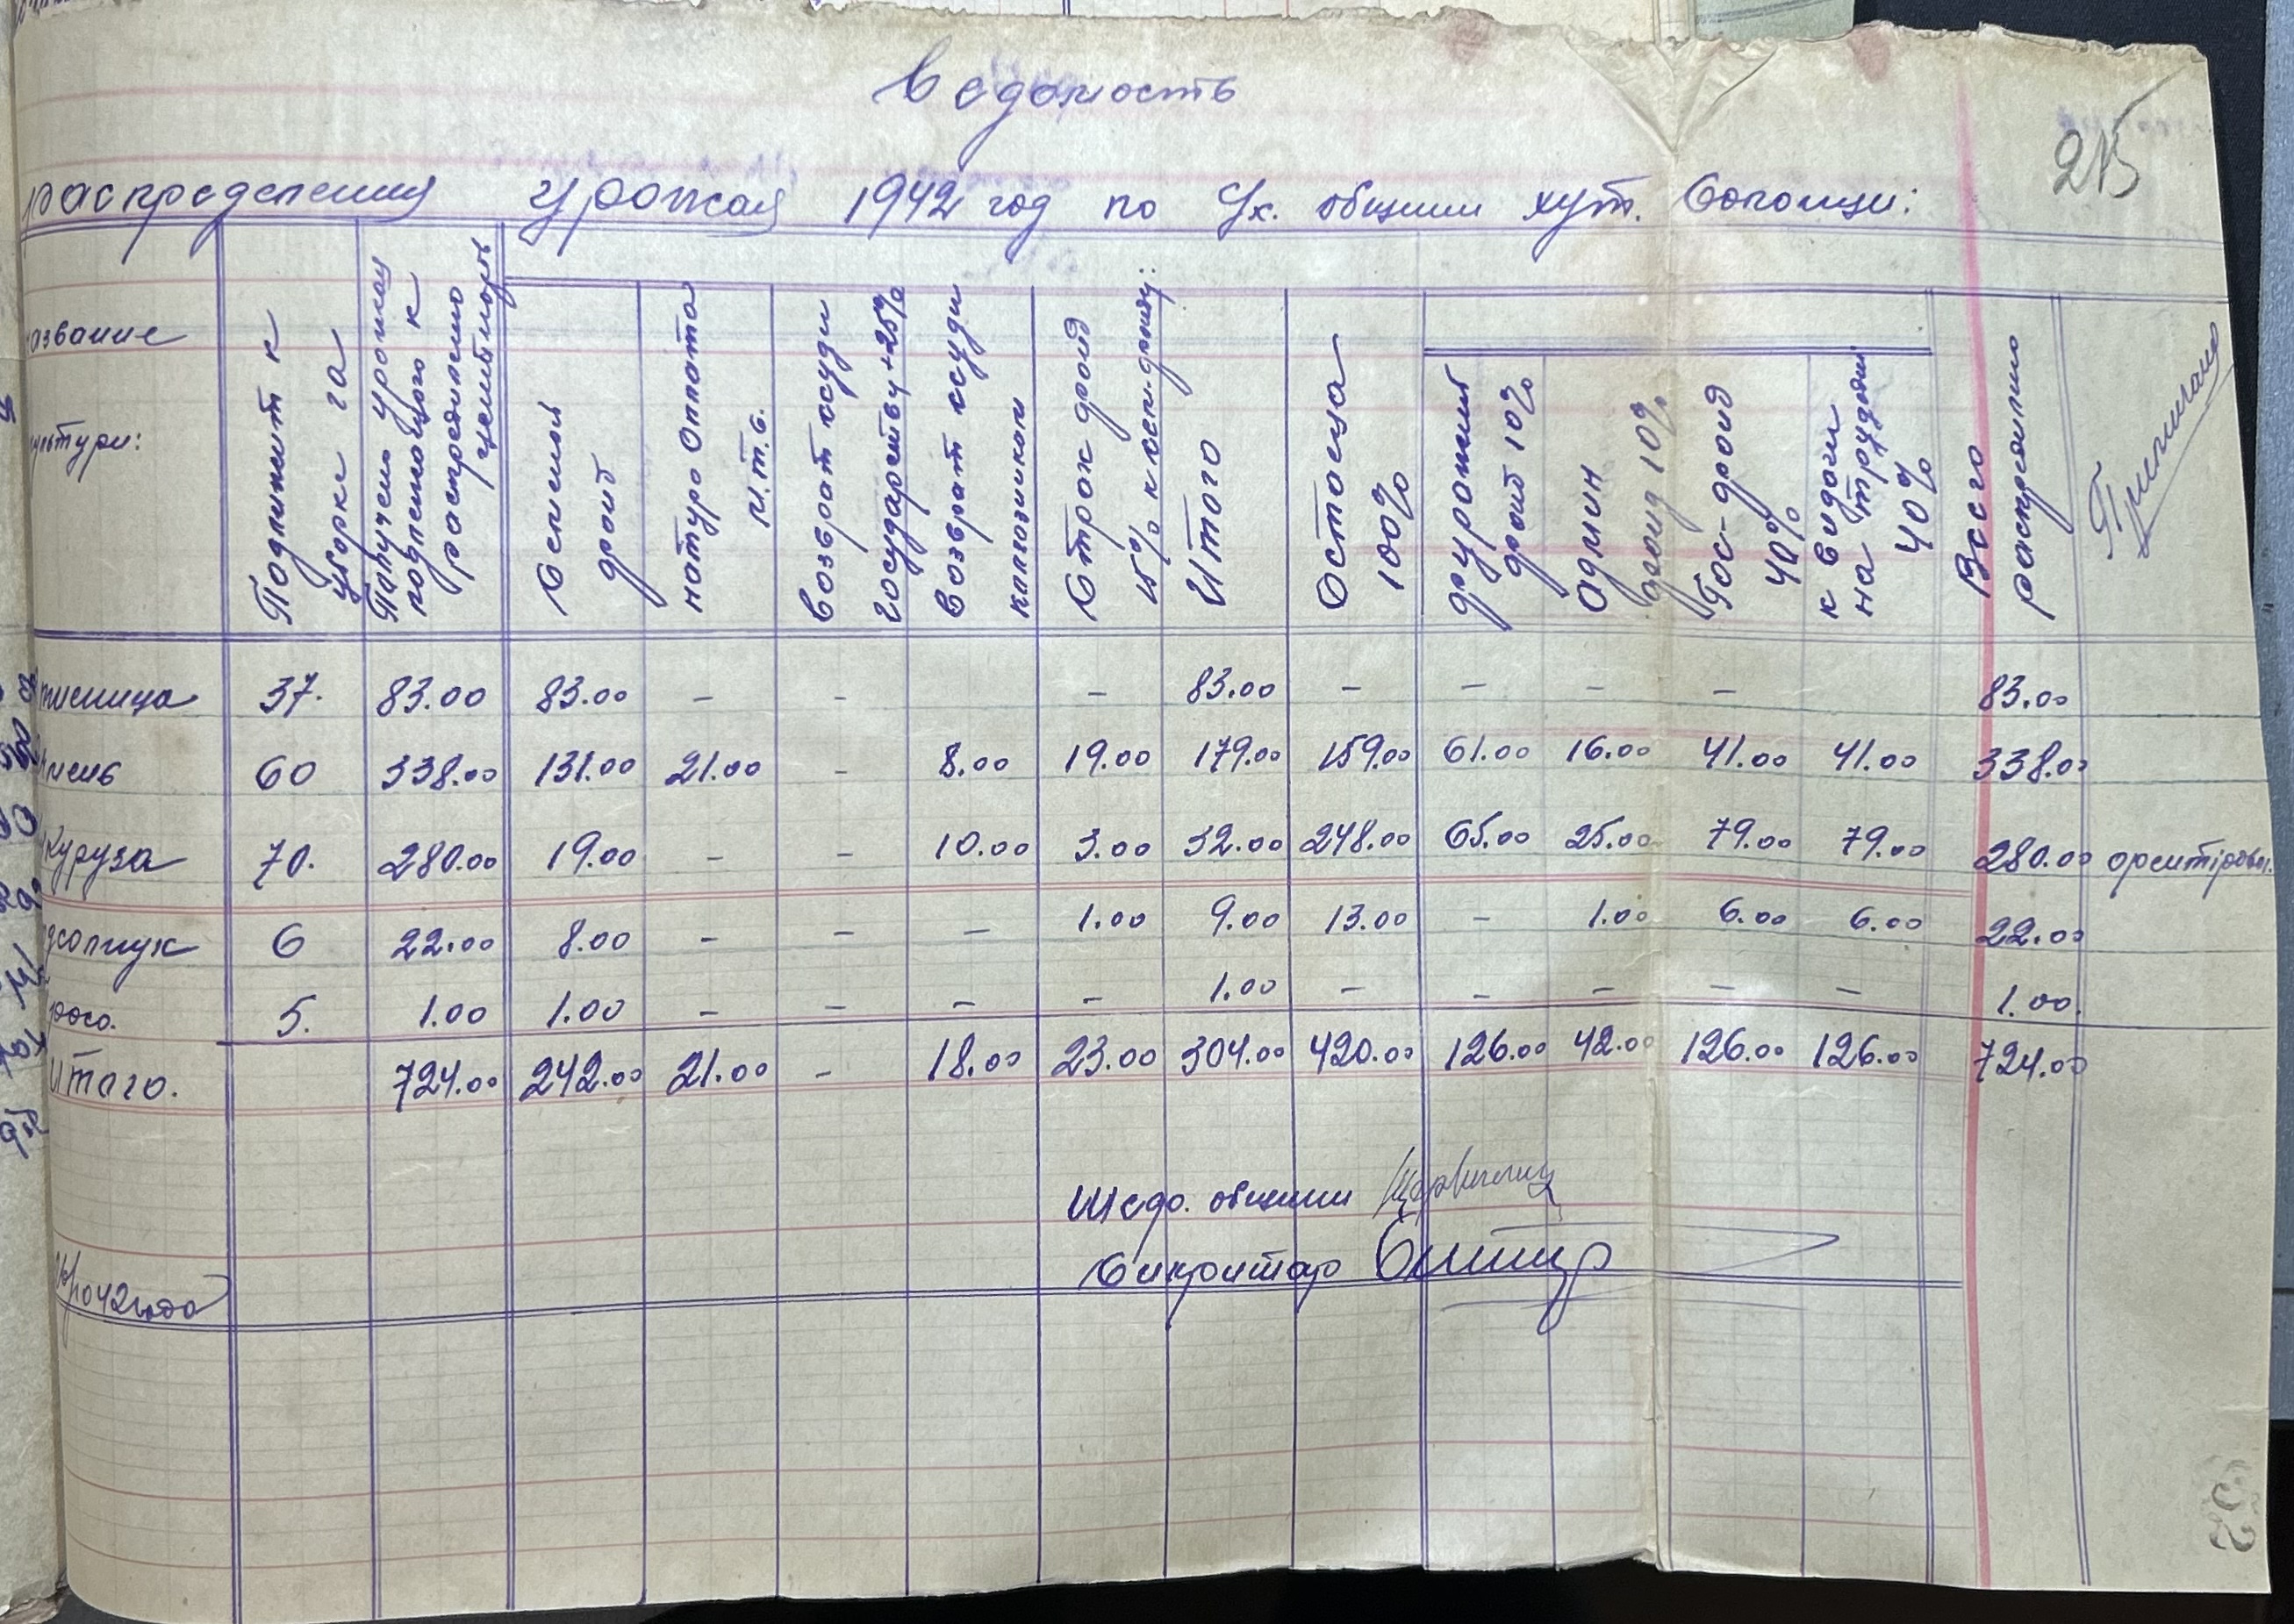 Ведомость
215
распределения урожая 1942 год по с/х. общини хут.
азвание
ультури:
Подлижит к уборке га
Палучено урожая подлежащого к распределению
Сесиной фонд
натуро Оплата м.т.с.
Возврат ссуди государству +25%
Возврат ссуди
Страх фонд 15% к
Итого
Остаеца 100%
фуражний фонд 10%
Админ фонд 10%
Гос-фонд 40%
к видачи на трудодни 40%
Всего распределино
Примичание
пшеница 37. 83.00 83.00 – – – 83.00 – – – – 83.00
чмень 60 338.00 131.00 21.00 – 8.00 19.00 179.00 159.00 61.00 16.00 41.00 41.00 338.00
куруза 70. 280.00 19.00 – – 10.00 3.00 32.00 248.00 65.00 25.00 79.00 79.00 280.00
дсолнук 6 22.00 8.00 – – – 1.00 9.00 13.00 – 1.00 6.00 6.00 22.00
росо. 5. 1.00 1.00 – – – – 1.00 – – – – – 1.00.
Итого. 724.00 242.00 21.00 – 18.00 23.00 304.00 420.00 126.00 42.00 126.00 126.00 724.00
общини
Сикритар
32